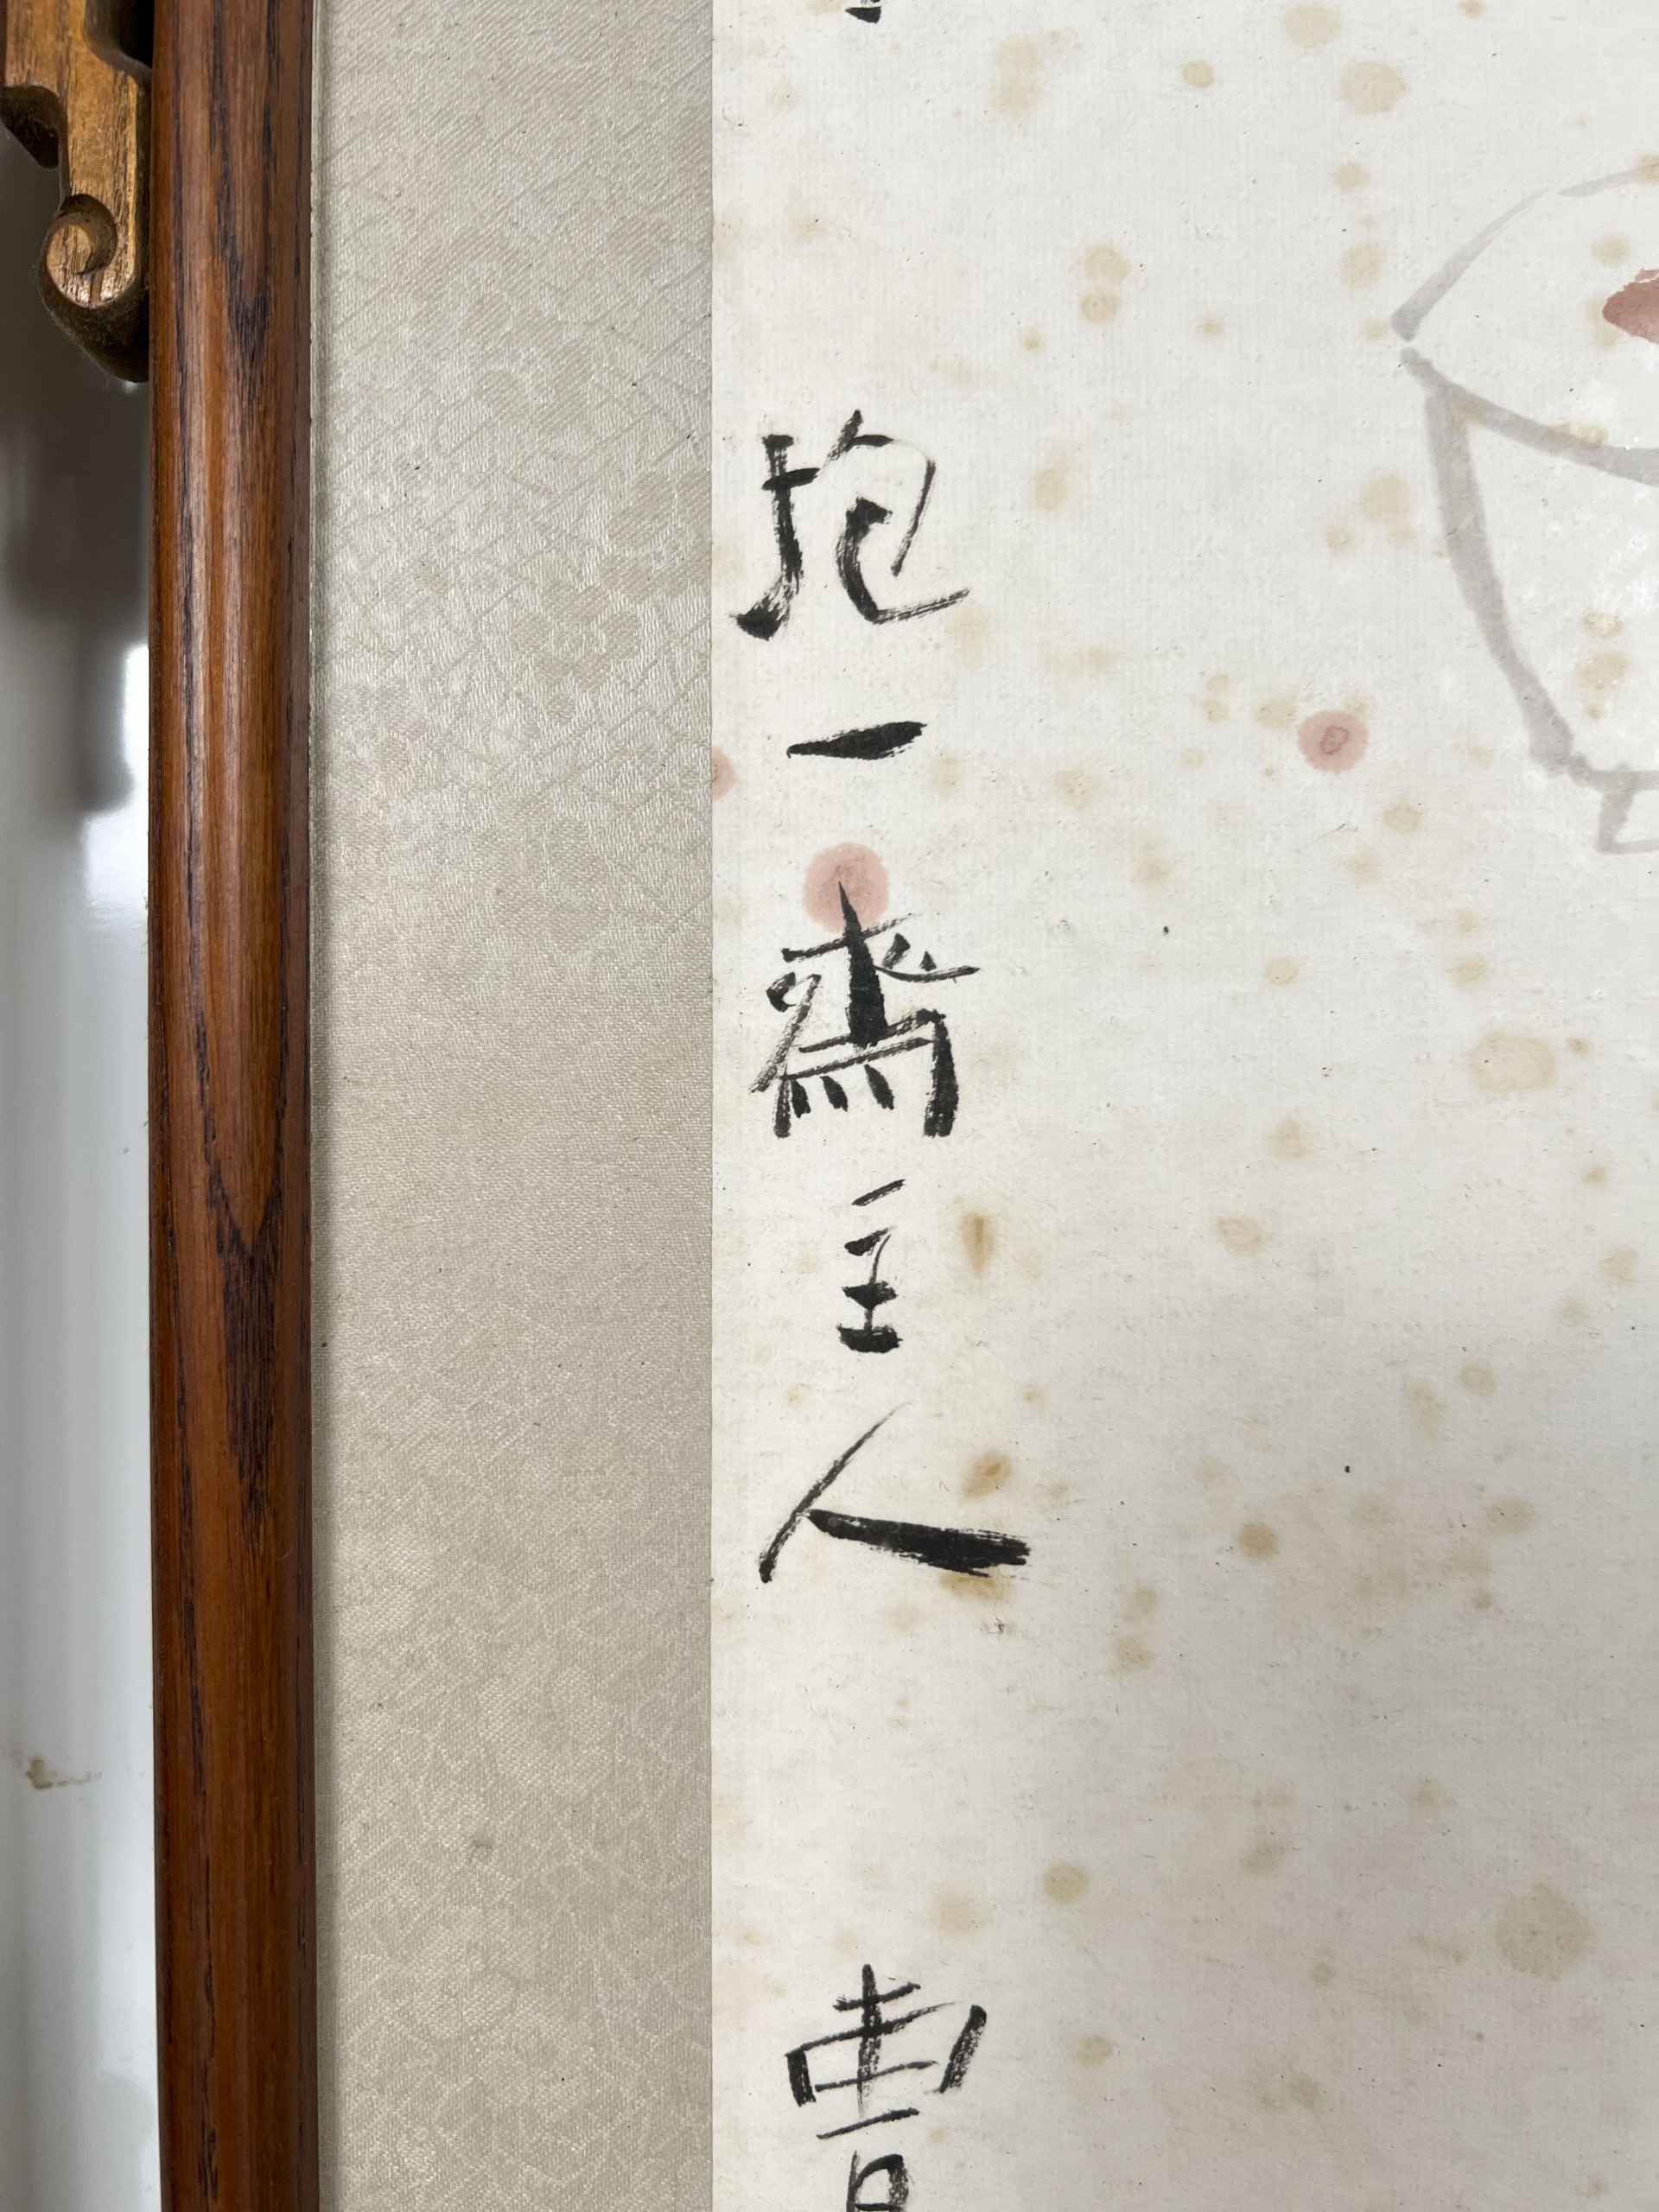 抱一齋主人 曹